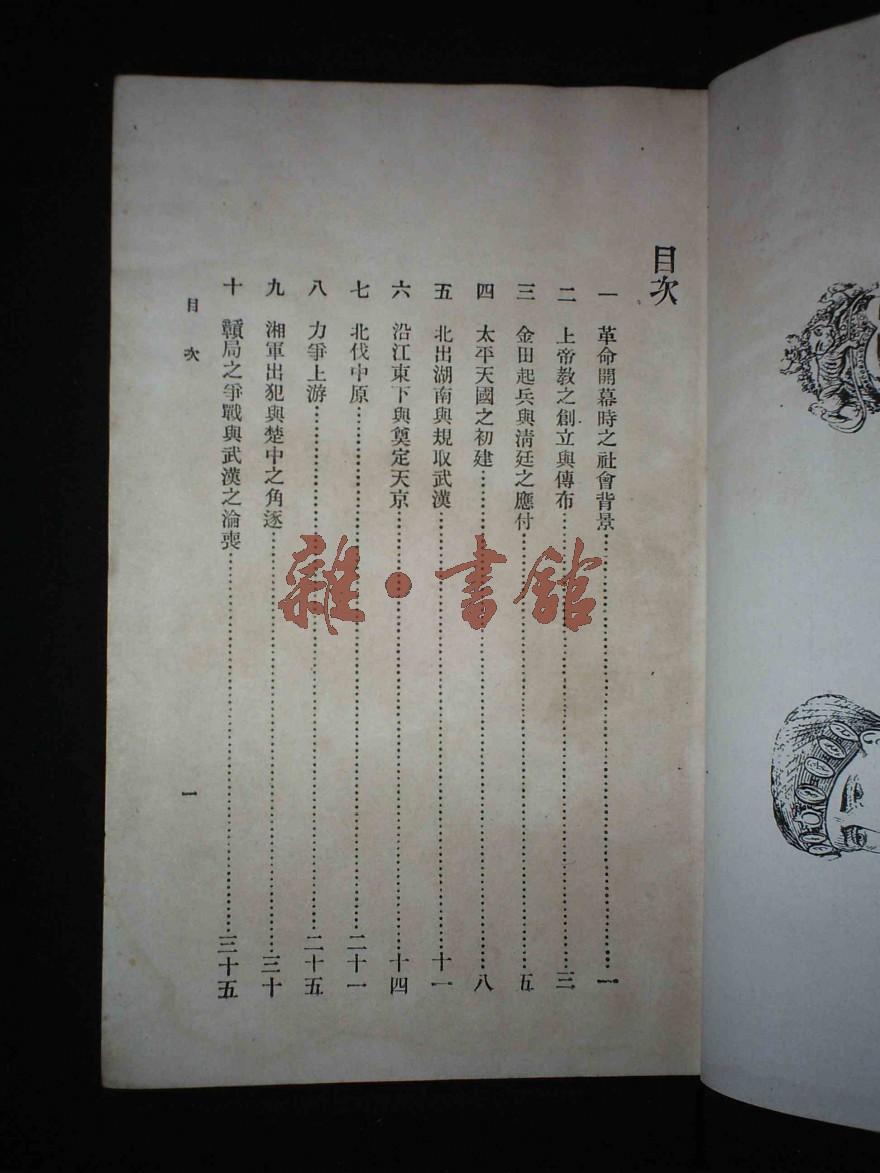 目次
一 革命開幕時之社會背景……一
二 上帝教之創立與傳布……三
三 金田起兵與淸廷之應付……五
四 太平天國之初建……八
五 北出湖南與規取武漢……十一
六 沿江東下與奠定天京……十四
七 北伐中原……二十一
八 力爭上游……二十五
九 湘軍出犯與楚中之角逐……三十
十 贛局之爭戰與武漢之淪喪……三十五
目次
一
雜·書館